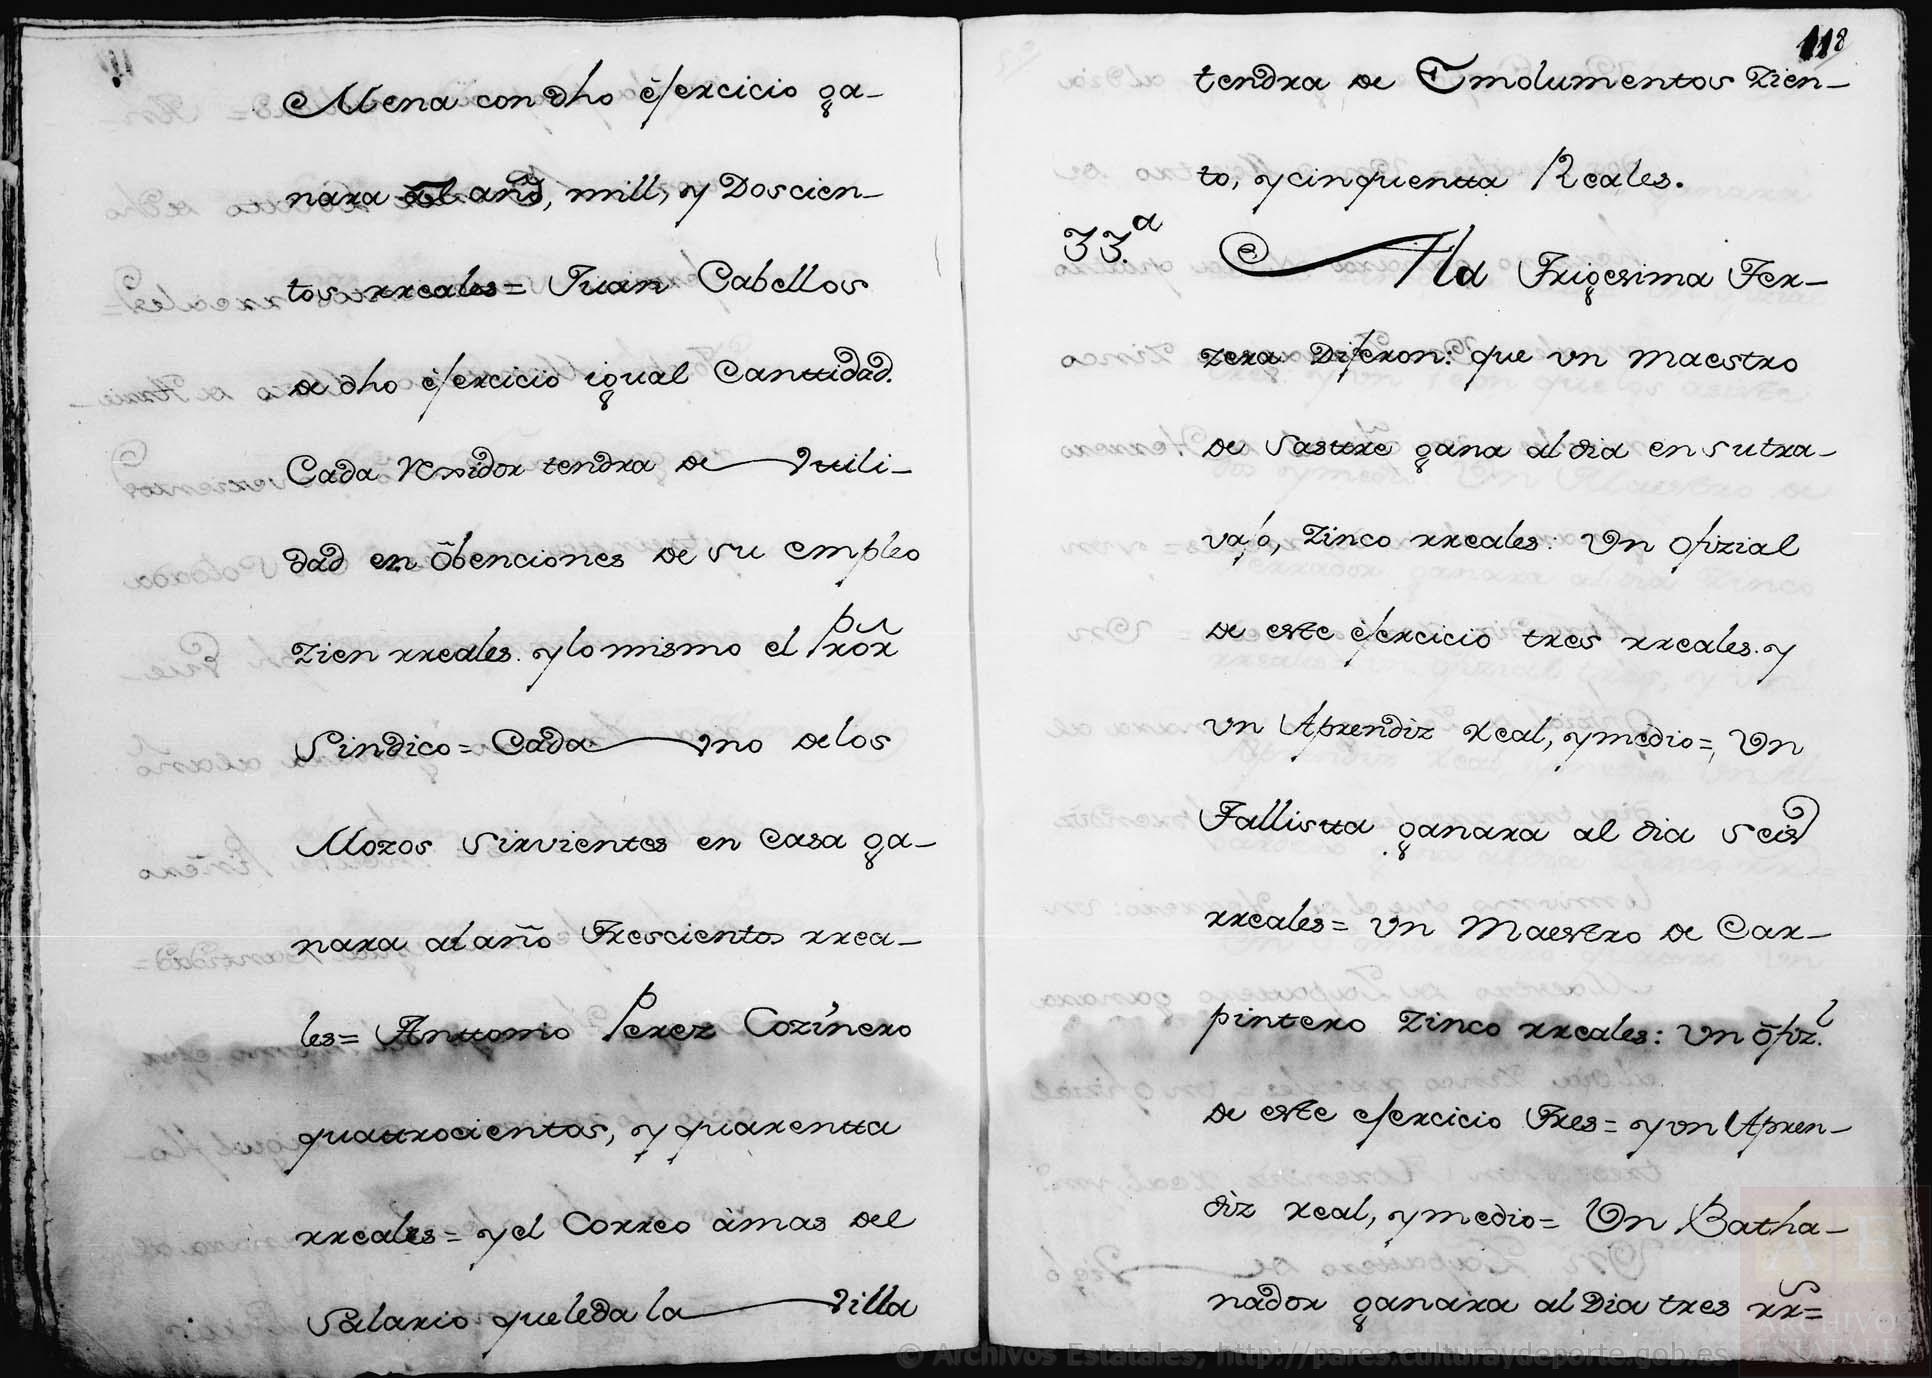 Mena con dho ejercicio ga-
nara al año, mill, y Doscien-
tos rreales = Juan Cabellos
de dho ejercicio igual Canttidad.
Cada Rexidor tendra de Vttili-
dad en obenciones de su empleo
Zien rreales. y lo mismo el Pror
Sindico = Cada vno de los
Mozos Sirvientes en Casa ga-
nara al año Trescientos rrea-
les = Anttonio Perez Cozinero
quattrocientos, y quarentta
rreales = y el Correo à mas del
Salario que le da la Villa
118
tendra de Emolumentos Zien-
to, y cinquentta Reales.
33.a A la Trigesima Ter-
zera Dijeron: que vn Maestro
de Sasttre gana al dia en su tra-
vajo, Zinco rreales: Vn ofizial
de este ejercicio tres rreales. y
vn Aprendiz real, y medio =, Vn
Tallistta ganara al dia seis
rreales = Vn Maestro de Car-
pintero Zinco rreales: Vn ofiz.l
de este ejercicio Tres = y vn Apren-
diz real, y medio = Vn Batha-
nador ganara al Dia tres rrs =
© Archivos Estatales, http://pares.culturaydeporte.gob.es
AE
ARCHIVOS
ESTATALES